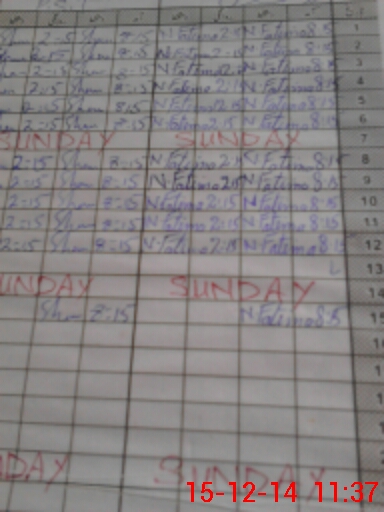 2-15 Sham 8:15 N Fatima 2:15 N Fatima 8:15 1
2-15 Sham 8:15 N Fatima 2-15 N Fatima 8:15 2
2-15 Sham 8-15 N Fatima 2:15 N Fatima 8:15 3
2:15 Sham 8:15 N Fatima 2:15 N Fatima 8:15 4
2:15 Sham 8:15 N Fatima 2:15 N Fatima 8:15 5
2-15 Sham 8-15 N Fatima 2:15 N Fatima 8:15 6
SUNDAY SUNDAY 7
2:15 Sham 8-15 N Fatima 2:15 N Fatima 8:15 8
2:15 Sham 8:15 N Fatima 2:15 N Fatima 8:15 9
2:15 Sham 8:15 N Fatima 2:15 N Fatima 8:15 10
2:15 Sham 8:15 N Fatima 2:15 N Fatima 8:15 11
2:15 Sham 8:15 N Fatima 2:15 N Fatima 8:15 12
L 13
UNDAY SUNDAY 14
Sham 8:15 N Fatima 8:15 15
DAY SUNDAY
15-12-14 11:37